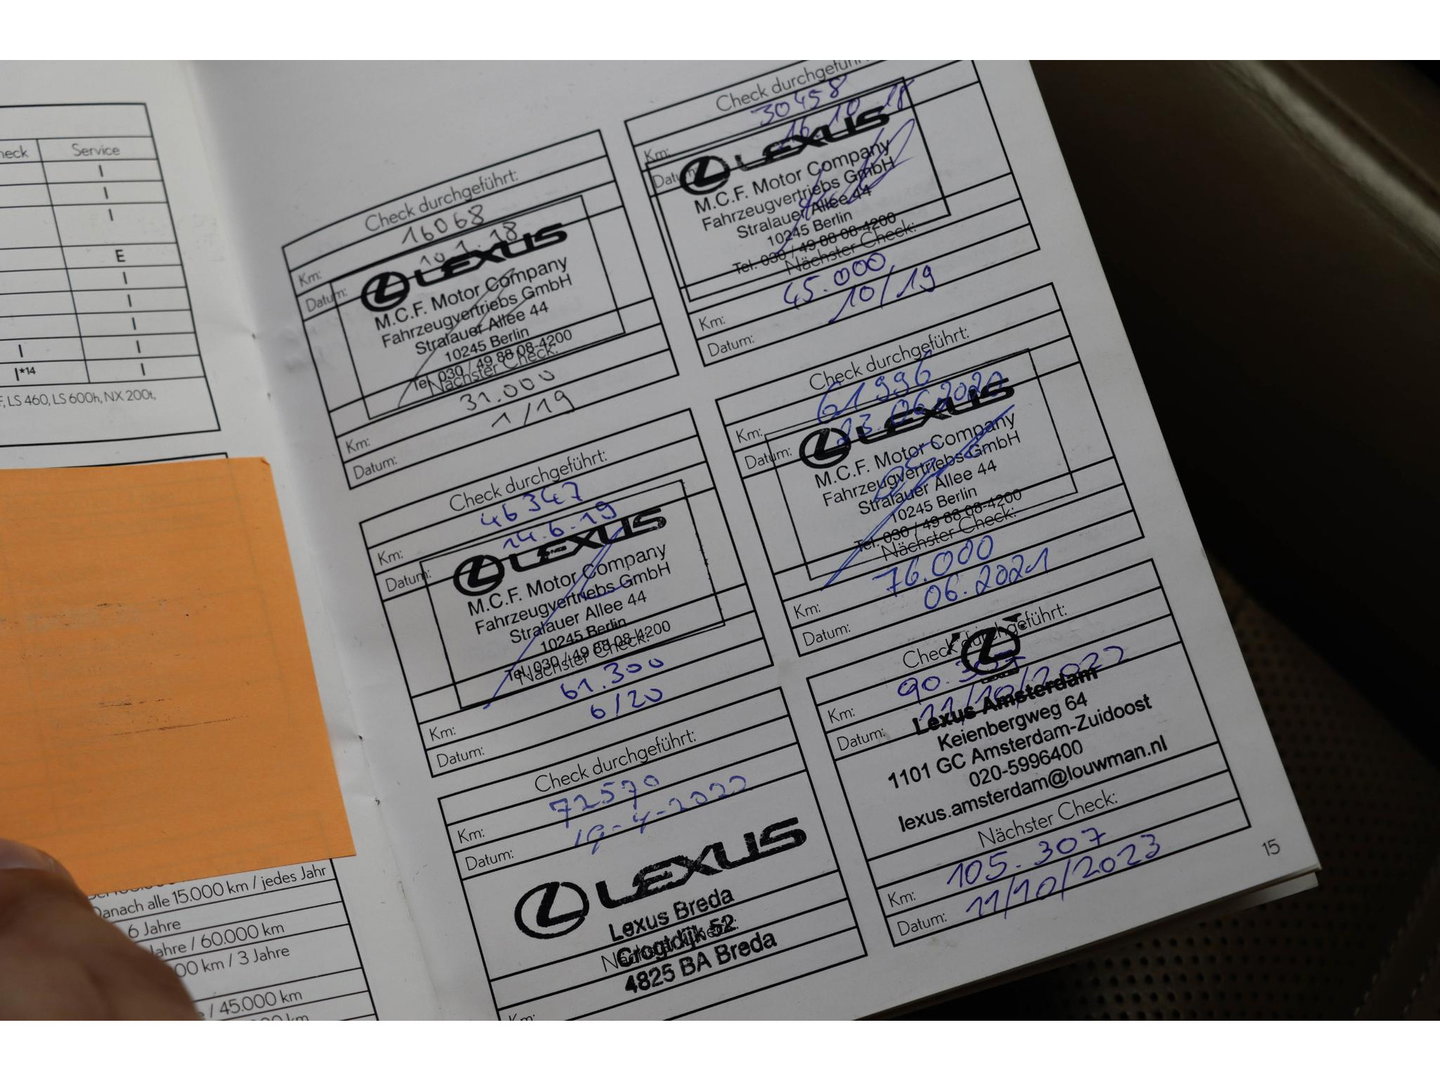 Service
I
I
I
E
I
I
I
I I
I*14 I
LS 460, LS 600h, NX 200t,
Danach alle 15.000 km / jedes Jahr
6 Jahre
/ 60.000 km
km / 3 Jahre
/ 45.000 km
Check durchgeführt:
Km: 16068
Datum:
LEXUS
M.C.F. Motor Company
Fahrzeugvertriebs GmbH
Stralauer Allee 44
10245 Berlin
Tel. 030 / 49 88 08-4200
Nächster Check:
Km: 31.000
Datum: 1/19
Check durchgeführt:
Km: 46347
Datum: 14.6.19
LEXUS
M.C.F. Motor Company
Fahrzeugvertriebs GmbH
Stralauer Allee 44
10245 Berlin
Tel. 030 / 49 88 08-4200
Nächster Check:
Km: 61.300
Datum: 6/20
Check durchgeführt:
Km: 72570
Datum: 19-4-2022
LEXUS
Lexus Breda
Crogtdijk 52
4825 BA Breda
Km:
Check durchgeführt:
Km: 30458
Datum: 16.10.18
LEXUS
M.C.F. Motor Company
Fahrzeugvertriebs GmbH
Stralauer Allee 44
10245 Berlin
Tel. 030 / 49 88 08-4200
Nächster Check:
Km: 45.000
Datum: 10/19
Check durchgeführt:
Km: 61996
Datum: 23.06.2020
LEXUS
M.C.F. Motor Company
Fahrzeugvertriebs GmbH
Stralauer Allee 44
10245 Berlin
Tel. 030 / 49 88 08-4200
Nächster Check:
Km: 76.000
Datum: 06.2021
Check durchgeführt:
Km: 90.307
Datum: 11/10/2022
Lexus Amsterdam
Keienbergweg 64
1101 GC Amsterdam-Zuidoost
020-5996400
lexus.amsterdam@louwman.nl
Nächster Check:
Km: 105.307
Datum: 11/10/2023
15